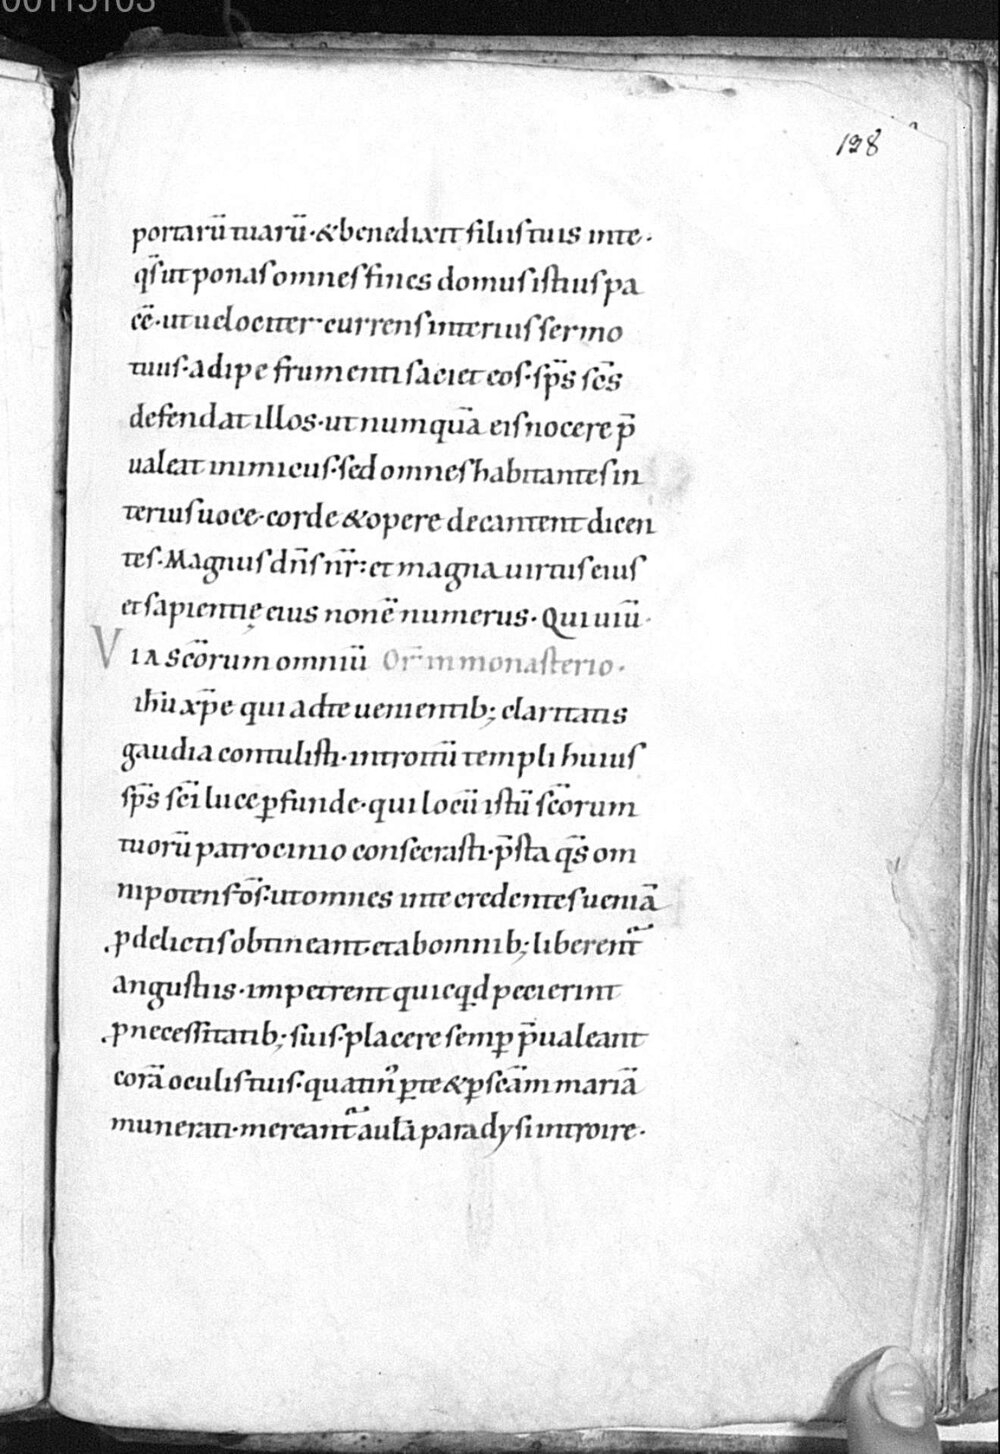 00115103
138
portarū tuarū·&benedixit filiis tuis inte·
qs̄ ut ponas omnes fines domus istius pa
cē·ut uelociter currens interius sermo
tuus·adipe frumenti saciet eos·sp̄s sc̄s
defendat illos·ut numquā eis nocere p̄
ualeat inimicus·sed omnes habitantes in
terius uoce·corde &opere decantent dicen
tes·Magnus dn̄s nr̄: et magna uirtus eius
et sapientię eius non ē numerus·Qui uiū·
VIA sc̄orum omniū Or̄ in monasterio·
ih̄u xp̄e qui ad te uenientib; claritatis
gaudia contulisti·introitū templi huius
sp̄s sc̄i luce ꝑfunde·qui locū istū sc̄orum
tuorū patrocinio consecrasti·p̄sta qs̄ om
nipotens ds̄·ut omnes in te credentes ueniā
·ꝓ delictis obtineant·et ab omnib; liberent̄
angustiis·impetrent quicq̄d pecierint
·ꝓ necessitatib; suis·placere semꝑ p̄ualeant
corā oculis tuis·quatinꝰ ꝑ te &ꝑ sc̄am mariā
munerati·mereant̄ aulā paradysi introire·